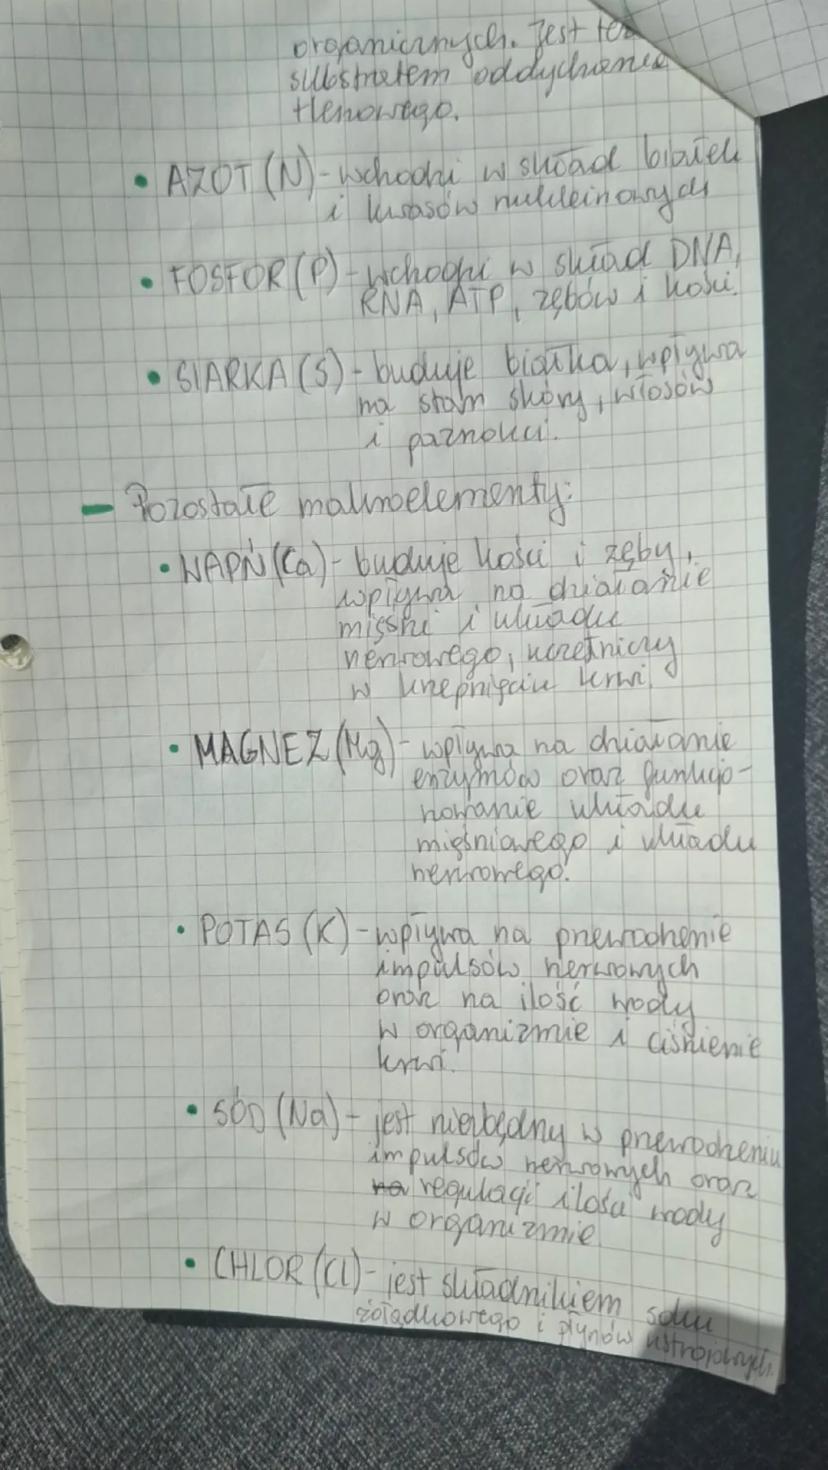 organicznych. Jest też
substratem oddychania
tlenowego.
• AZOT (N) - wchodzi w skład białek
i kwasów nukleinowych
• FOSFOR (P) - wchodzi w skład DNA,
RNA, ATP, zębów i kości.
• SIARKA (S) - buduje białka, wpływa
na stan skóry, włosów
i paznokci.
- Pozostałe makroelementy:
• WAPŃ (Ca) - buduje kości i zęby,
wpływa na działanie
mięśni i układu
nerwowego, uczestniczy
w krzepnięciu krwi.
• MAGNEZ (Mg) - wpływa na działanie
enzymów oraz funkcjo-
nowanie układu
mięśniowego i układu
nerwowego.
• POTAS (K) - wpływa na przewodzenie
impulsów nerwowych
oraz na ilość wody
w organizmie i ciśnienie
krwi.
• SÓD (Na) - jest niezbędny w przewodzeniu
impulsów nerwowych oraz
na regulacji ilości wody
w organizmie
• CHLOR (Cl) - jest składnikiem soku
żołądkowego i płynów ustrojowych.